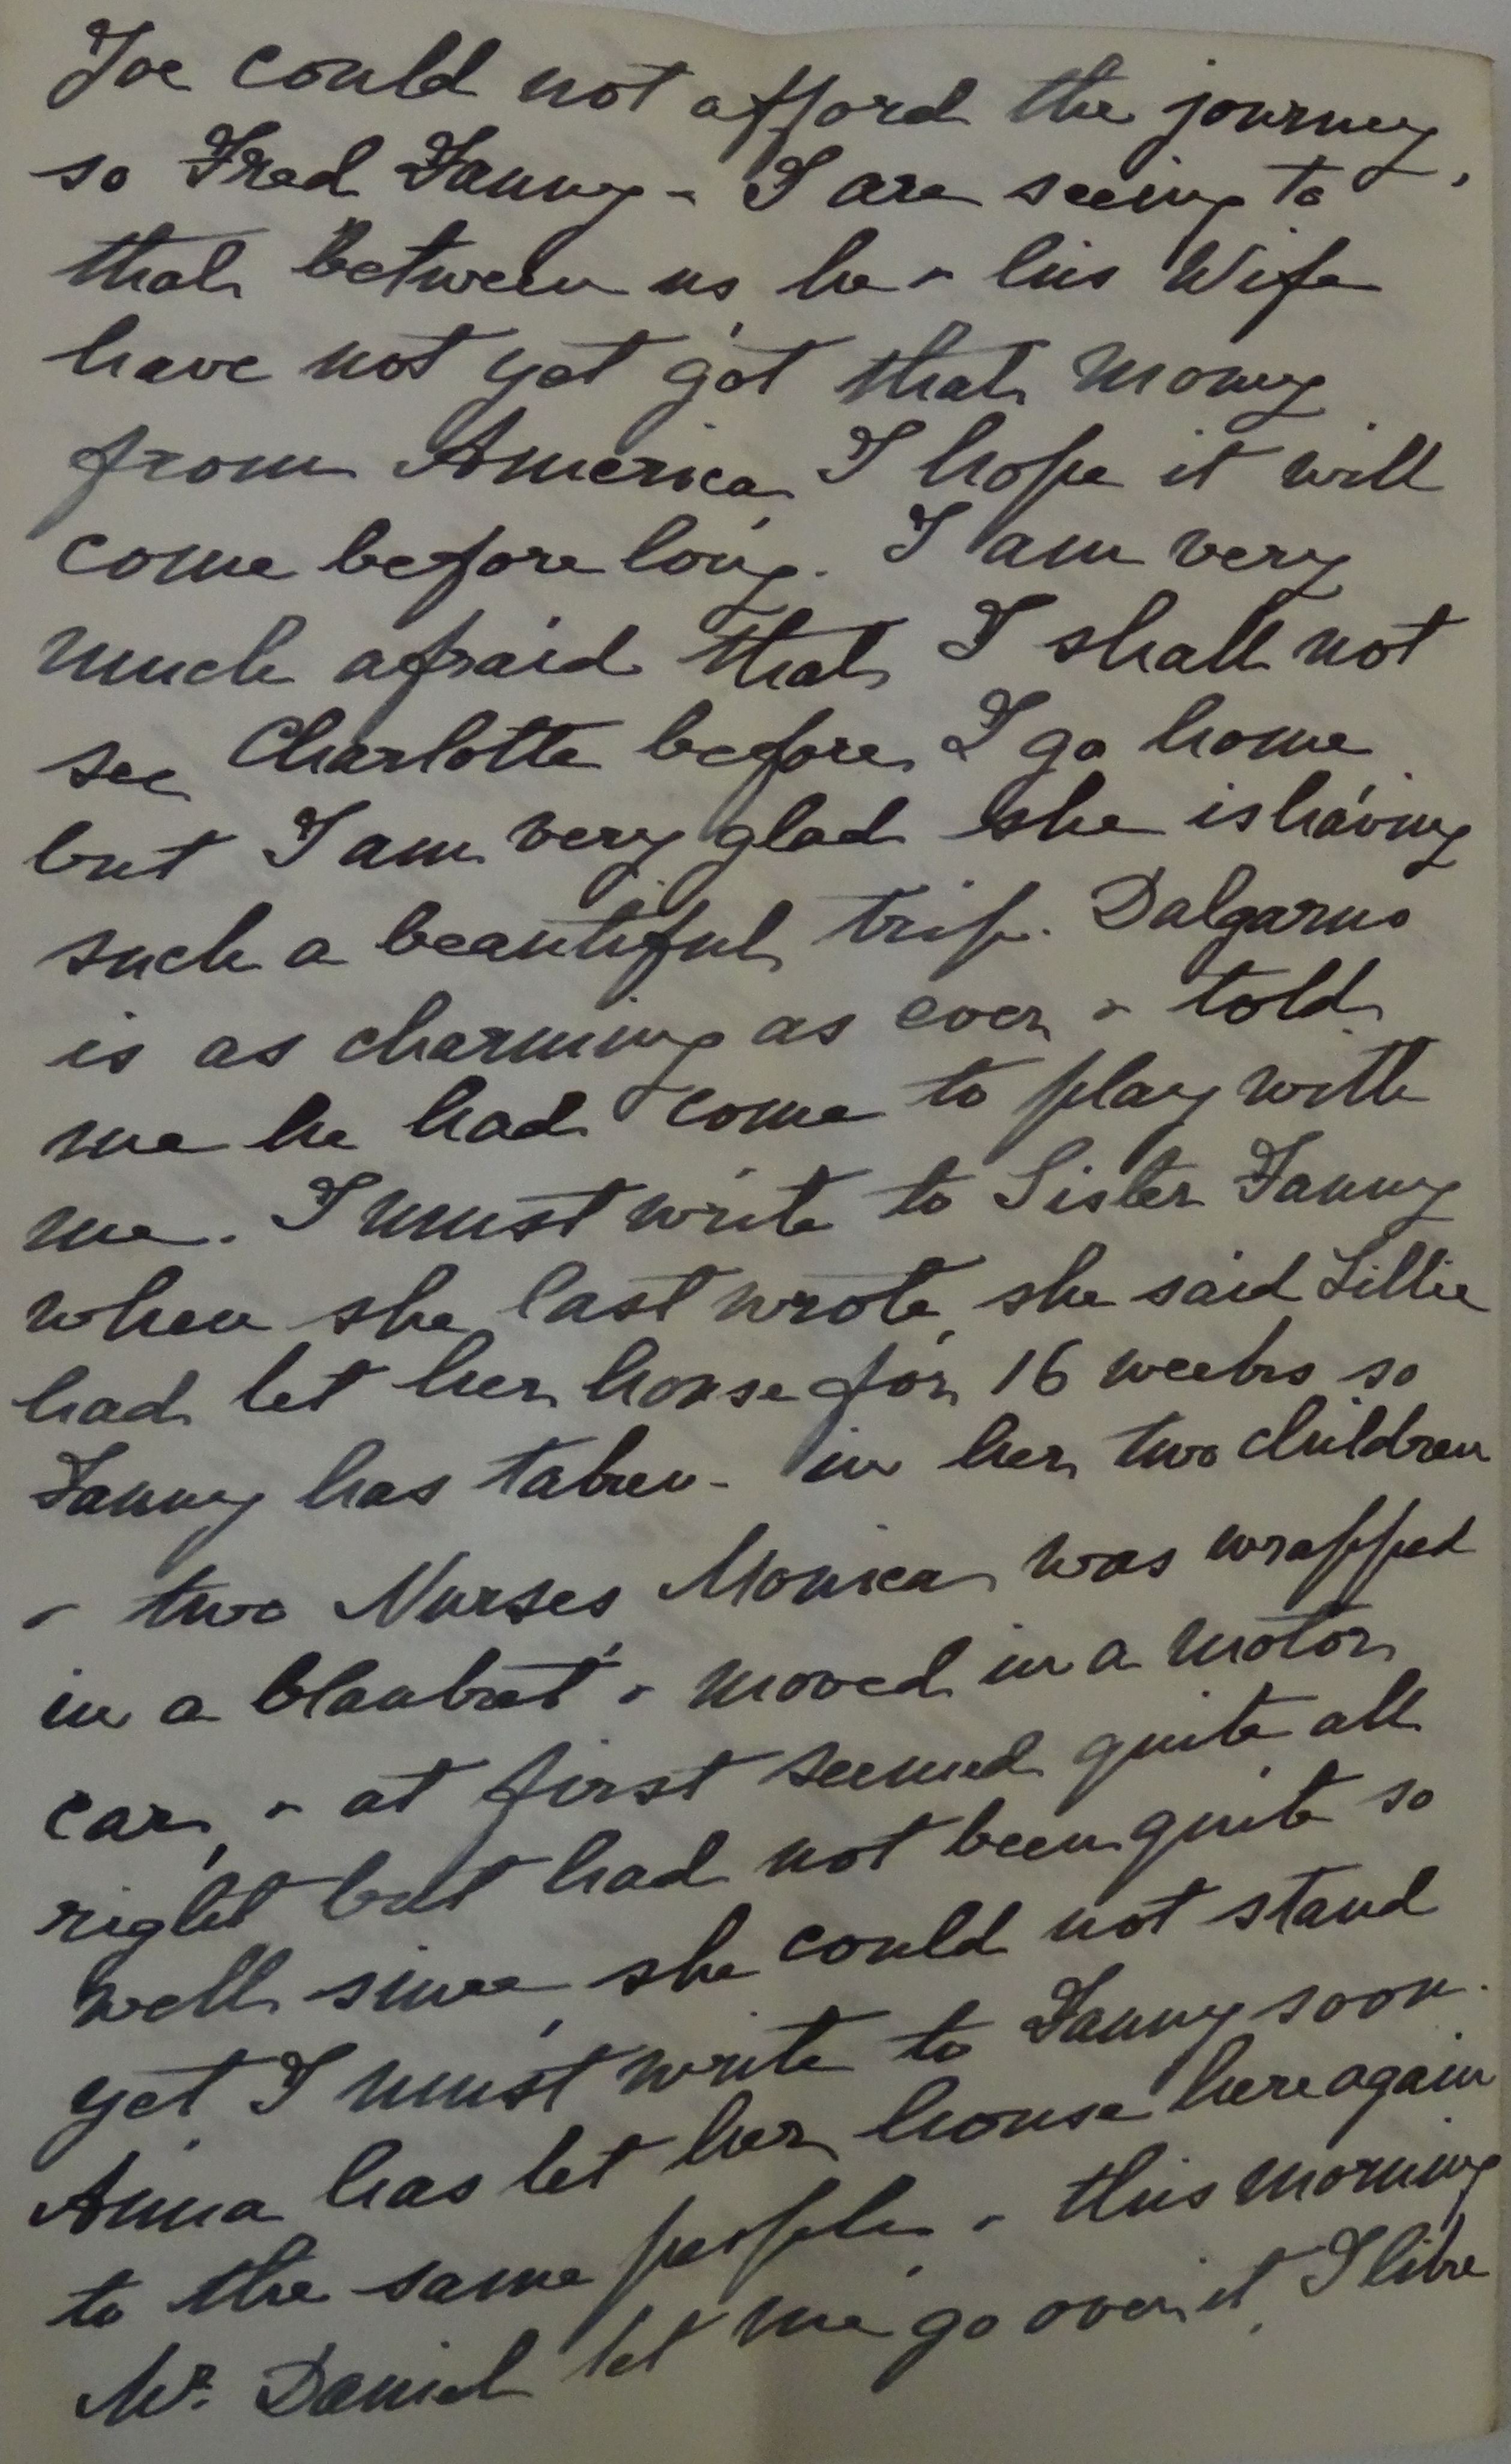 Joe could not afford the journey,
so Fred Fanny & I are seeing to
that between us, he & his Wife
have not yet got that money
from America, I hope it will
come before long. I am very
much afraid that I shall not
see Charlotte before I go home
but I am very glad she is having
such a beautiful trip. Dalgarno
is as charming as ever & told
me he had come to play with
me. I must write to Sister Fanny
when she last wrote, she said Lillie
had let her house for 16 weeks so
Fanny has taken - in her two children
& two Nurses, Monica was wrapped
in a blanket & moved in a motor
car, & at first seemed quite all
right but had not been quite so
well since, she could not stand
yet I must write to Fanny soon.
Anna has let her house here again
to the same people, & this morning
Mr. Daniel let me go over it, I like